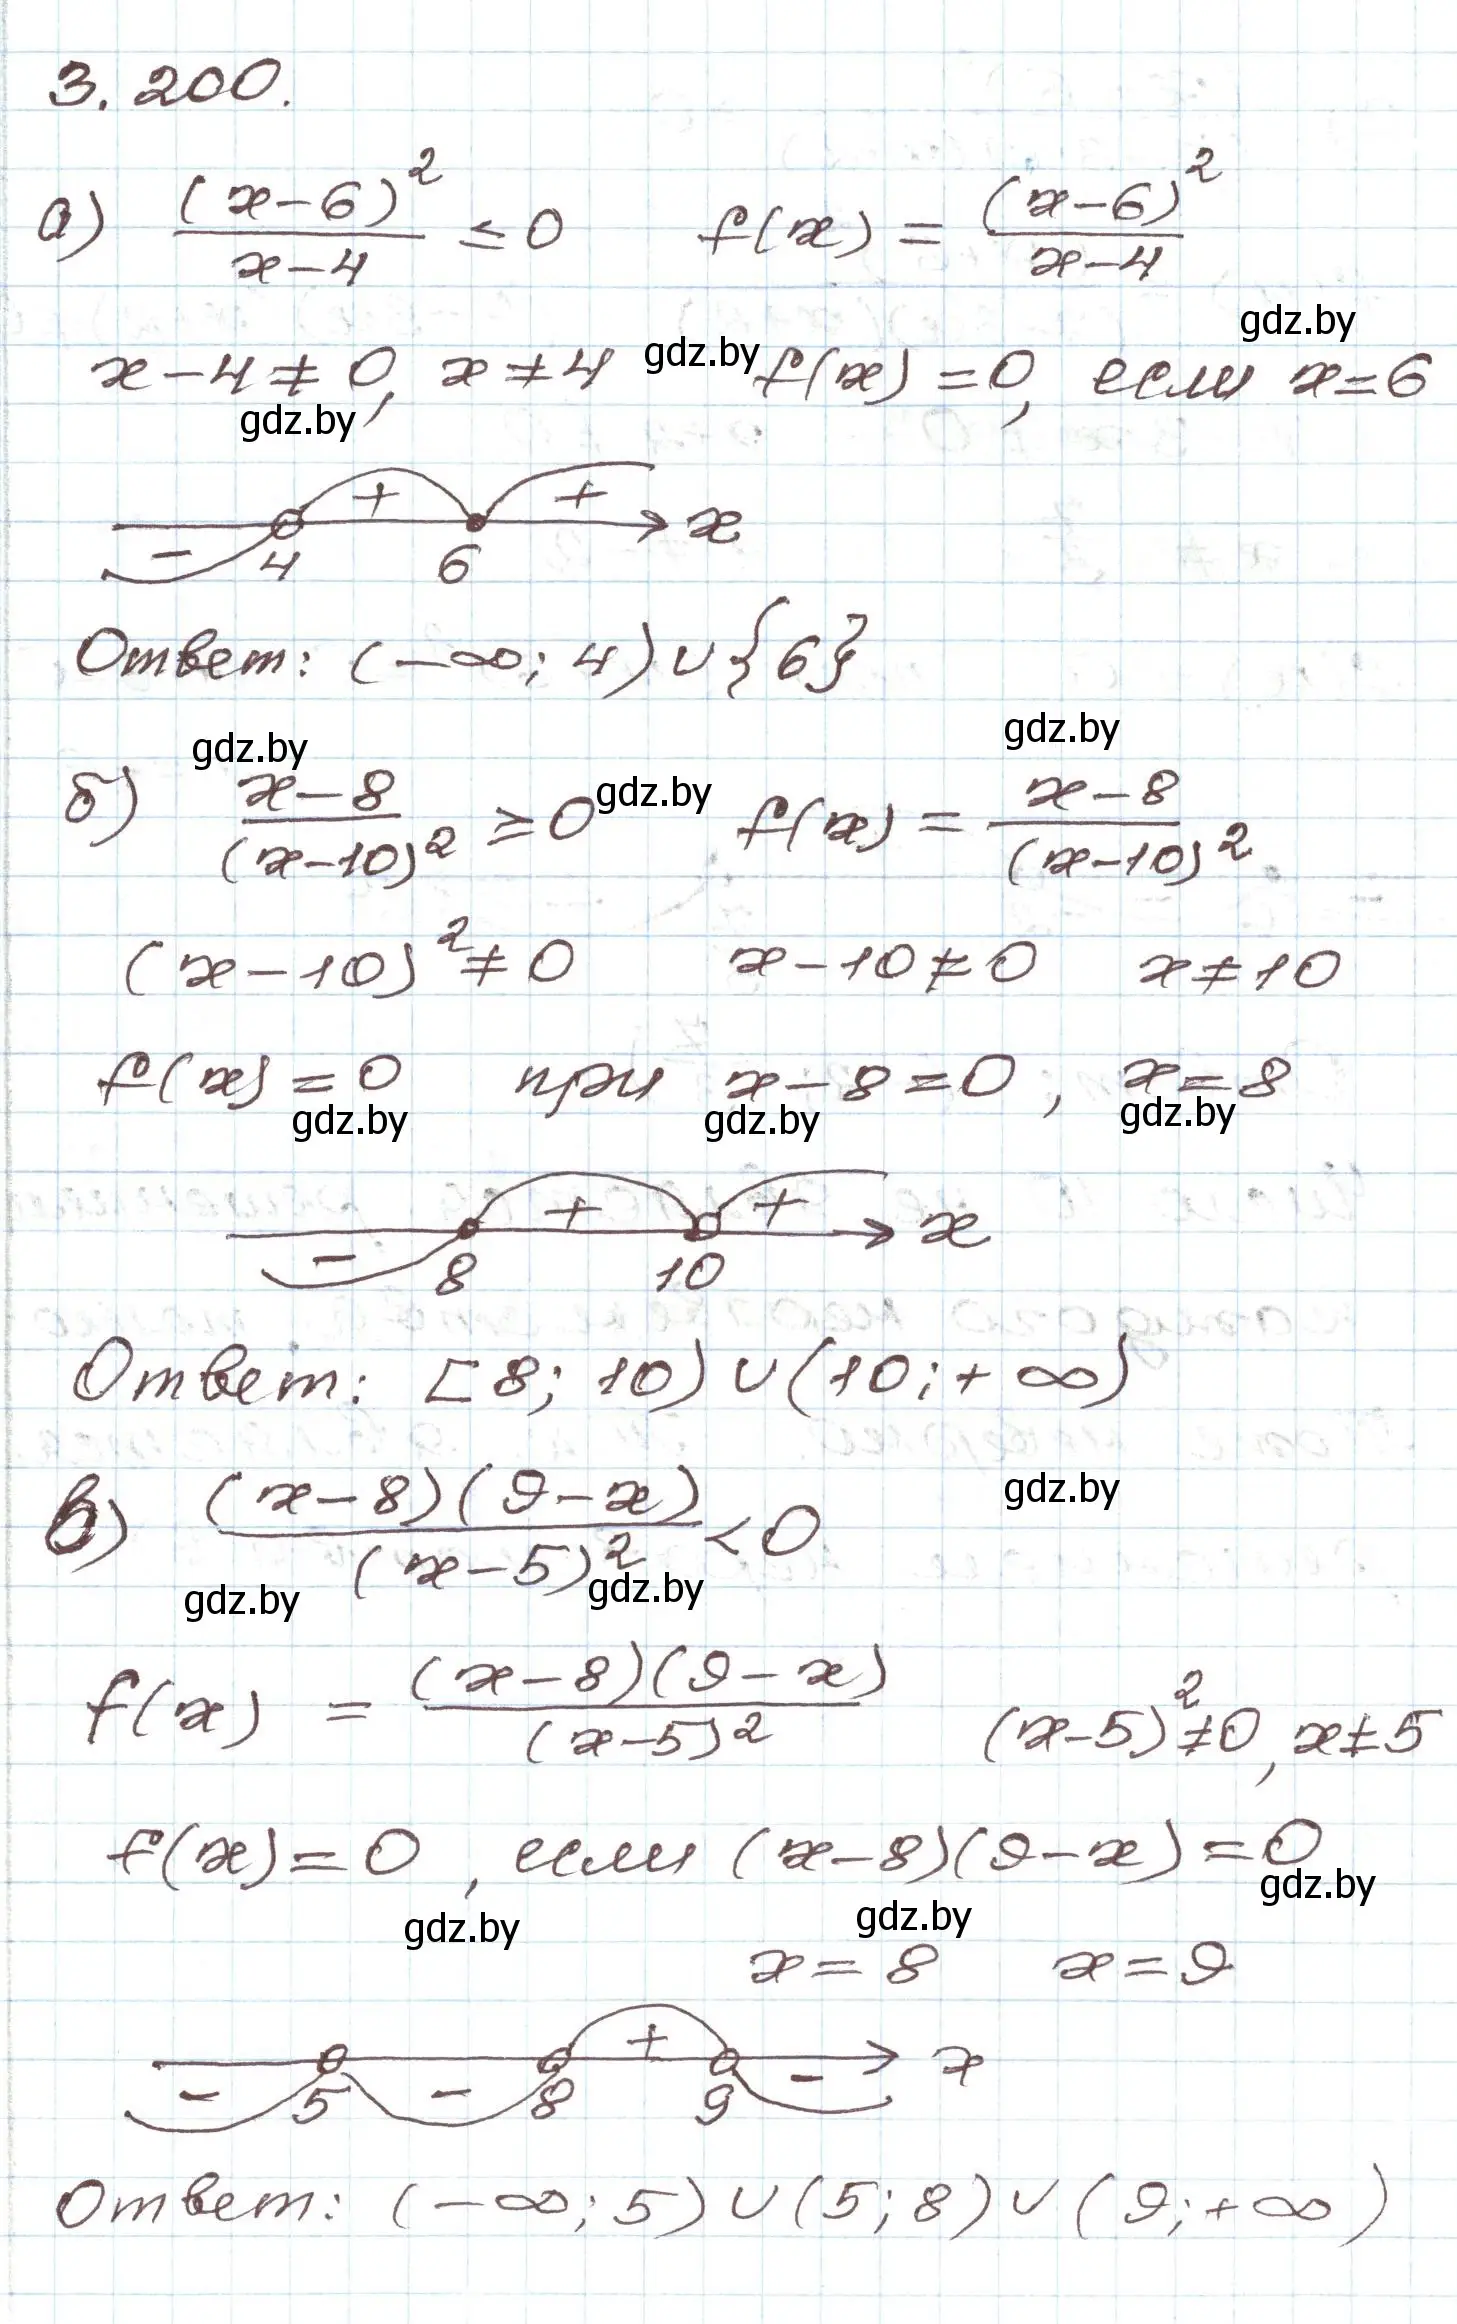 3.200.
а) (x-6)²/(x-4) ≤ 0 f(x) = (x-6)²/(x-4)
gdz.by
x-4≠0, x≠4 gdz.by f(x)=0, если x=6
gdz.by
- 4 + 6 + x
Ответ: (-∞; 4)∪{6}
gdz.by gdz.by
б) (x-8)/(x-10)² ≥ 0 gdz.by f(x) = (x-8)/(x-10)²
(x-10)²≠0 x-10≠0 x≠10
f(x)=0 при x-8=0, x=8
gdz.by gdz.by gdz.by
- 8 + 10 + x
Ответ: [8; 10)∪(10;+∞)
в) (x-8)(9-x)/(x-5)² < 0 gdz.by
gdz.by gdz.by
f(x) = (x-8)(9-x)/(x-5)² (x-5)²≠0, x≠5
f(x)=0, если (x-8)(9-x)=0
gdz.by gdz.by gdz.by
x=8 x=9
- 5 - 8 + 9 - x
Ответ: (-∞; 5)∪(5; 8)∪(9;+∞)